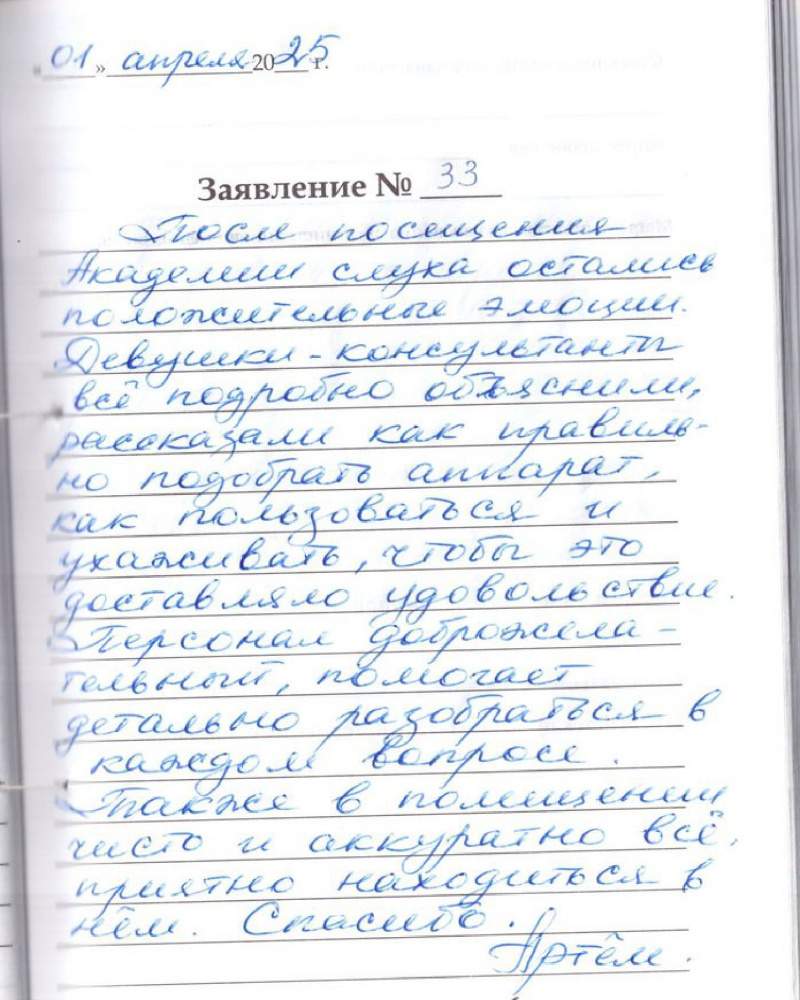 «01» апреля 2025 г.
Заявление № 33
После посещения
Академии слуха остались
положительные эмоции.
Девушки-консультанты
всё подробно объяснили,
рассказали как правиль-
но подобрать аппарат,
как пользоваться и
ухаживать, чтобы это
доставляло удовольствие.
Персонал доброжела-
тельный, помогает
детально разобраться в
каждом вопросе.
Также в помещении
чисто и аккуратно всё,
приятно находиться в
нём. Спасибо.
Артём.